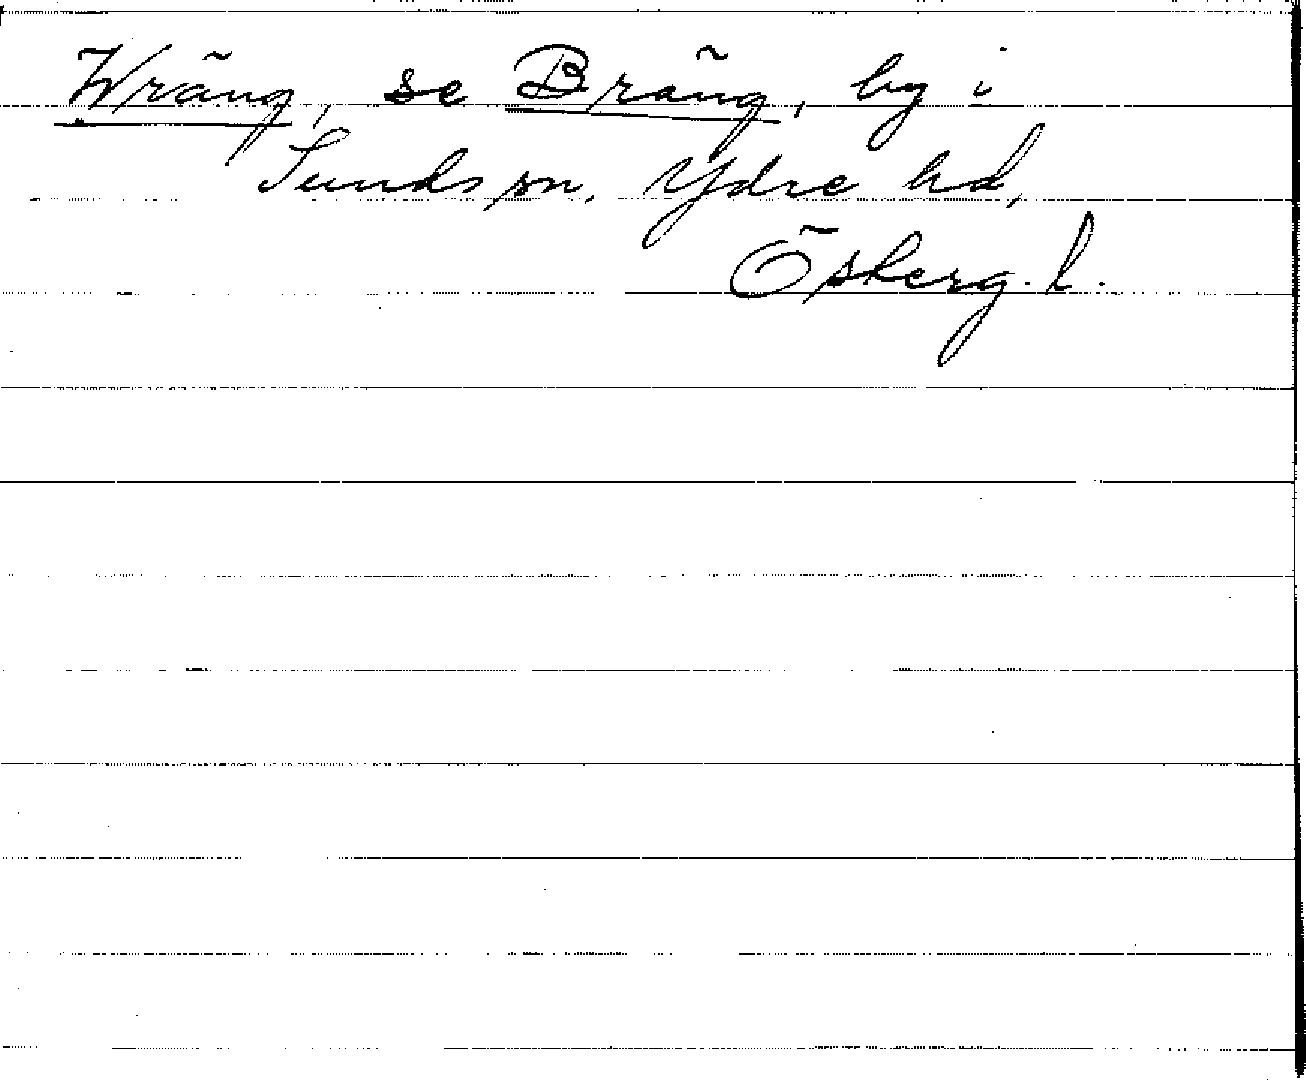 Wräng, se Bräng, by i
Sunds sn, Ydre hd,
Östberg. l.